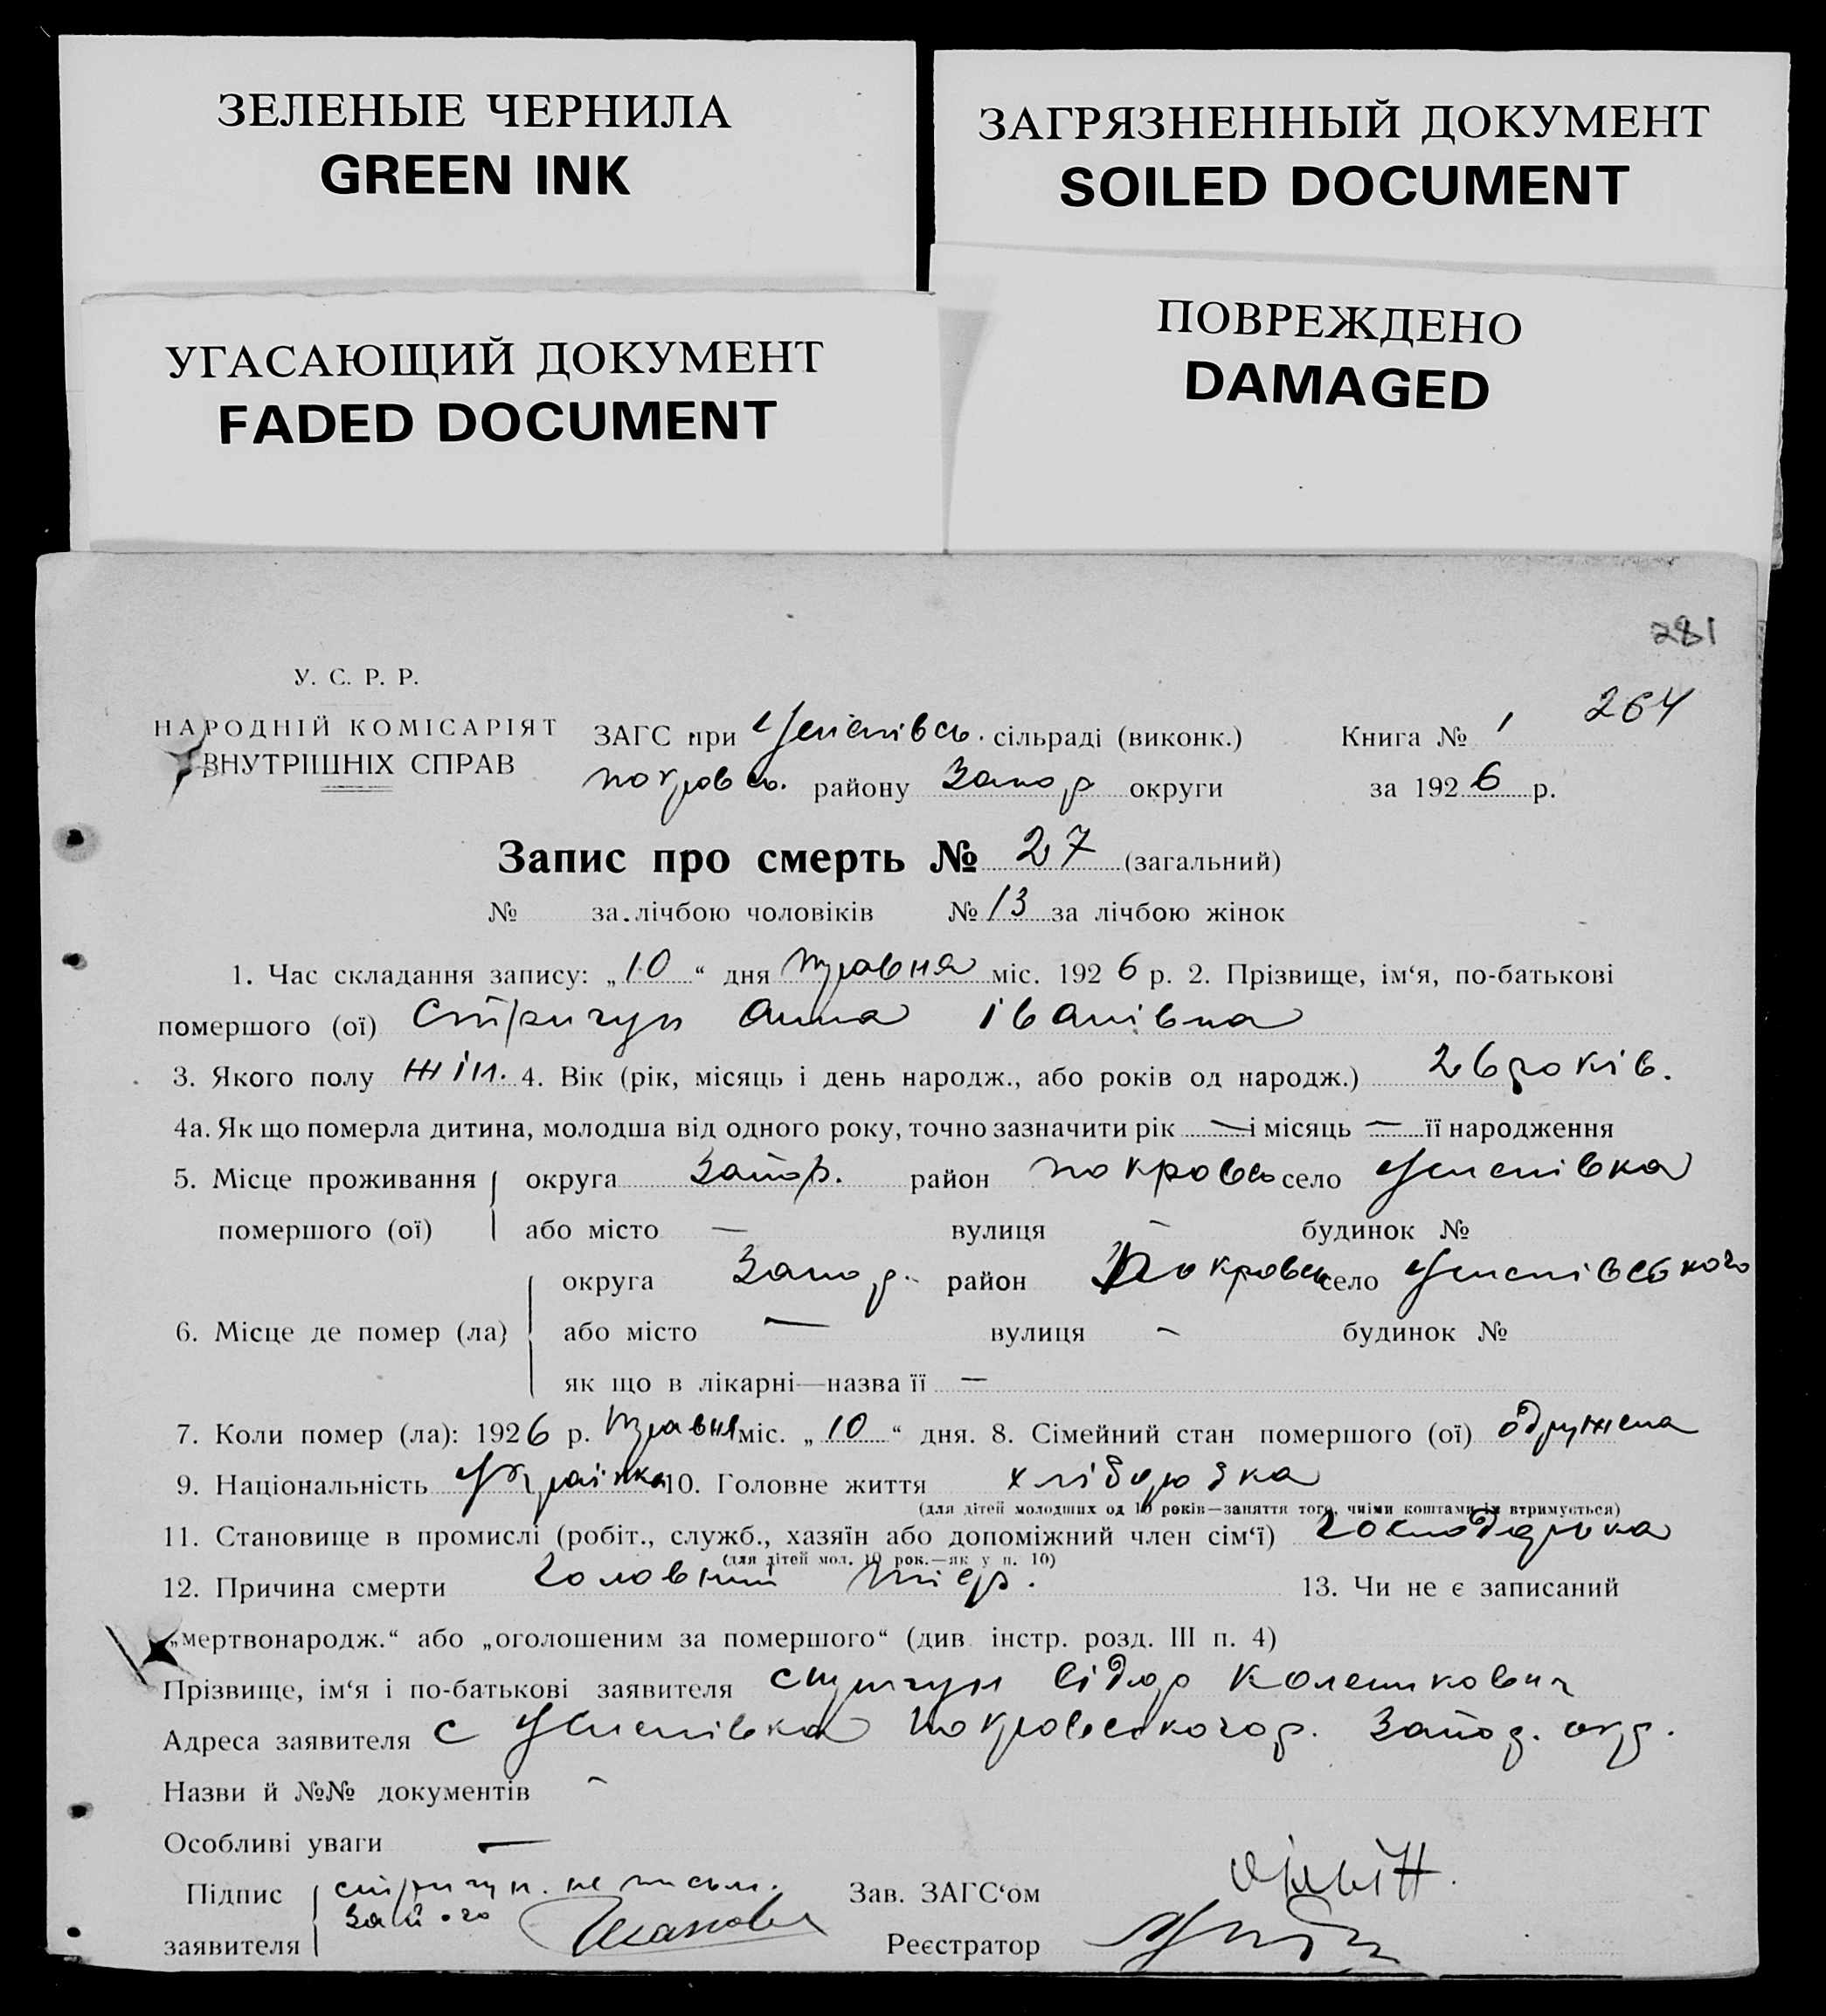 ЗЕЛЕНЫЕ ЧЕРНИЛА
GREEN INK
ЗАГРЯЗНЕННЫЙ ДОКУМЕНТ
SOILED DOCUMENT
УГАСАЮЩИЙ ДОКУМЕНТ
FADED DOCUMENT
ПОВРЕЖДЕНО
DAMAGED
281
264
У. С. Р. Р.
НАРОДНІЙ КОМІСАРІЯТ
ВНУТРІШНІХ СПРАВ
ЗАГС при Успенівсь. сільраді (виконк.)
Книга № 1
Покровсь. району Запор округи
за 1926 р.
Запис про смерть № 27 (загальний)
№ за лічбою чоловіків № 13 за лічбою жінок
1. Час складання запису: „10“ дня травня міс. 1926 р. 2. Прізвище, ім‘я, по-батькові
помершого (ої) Стригун Анна Іванівна
3. Якого полу жін. 4. Вік (рік, місяць і день народж., або років од народж.) 26 років.
4а. Як що померла дитина, молодша від одного року, точно зазначити рік — і місяць — її народження
5. Місце проживання округа Запор. район Покровсь село Успенівка
помершого (ої) або місто — вулиця — будинок №
округа Запор. район Покровсь село Успенівського
6. Місце де помер (ла) або місто — вулиця — будинок №
як що в лікарні—назва її —
7. Коли помер (ла): 1926 р. травня міс. „10“ дня. 8. Сімейний стан помершого (ої) одружена
9. Національність Українка 10. Головне життя хліборобка
(для дітей молодших од 10 років—заняття того, чиїми коштами їх втримується)
11. Становище в промислі (робіт., служб., хазяїн або допоміжний член сім‘ї) господарька
(для дітей мол. 10 рок.—як у п. 10)
12. Причина смерти головний 13. Чи не є записаний
„мертвонародж.“ або „оголошеним за помершого“ (див. інстр. розд. III п. 4)
Прізвище, ім‘я і по-батькові заявителя Стригун Сідор
Адреса заявителя с Успенівка Покровського р. Запор. окр.
Назви й №№ документів —
Особливі уваги —
Підпис Стригун. не письм. Зав. ЗАГС‘ом
за його
заявителя Реєстратор